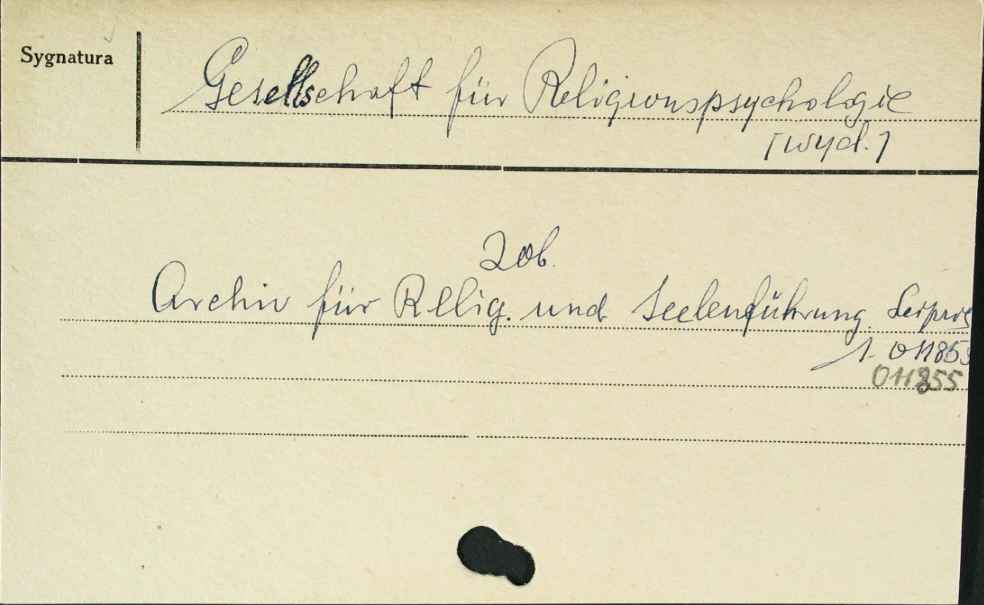 Sygnatura
Gesellschaft für Religionspsychologie
[wyd.]
Zob.
Archiv für Relig. und Seelenführung.
1. 011853
011855